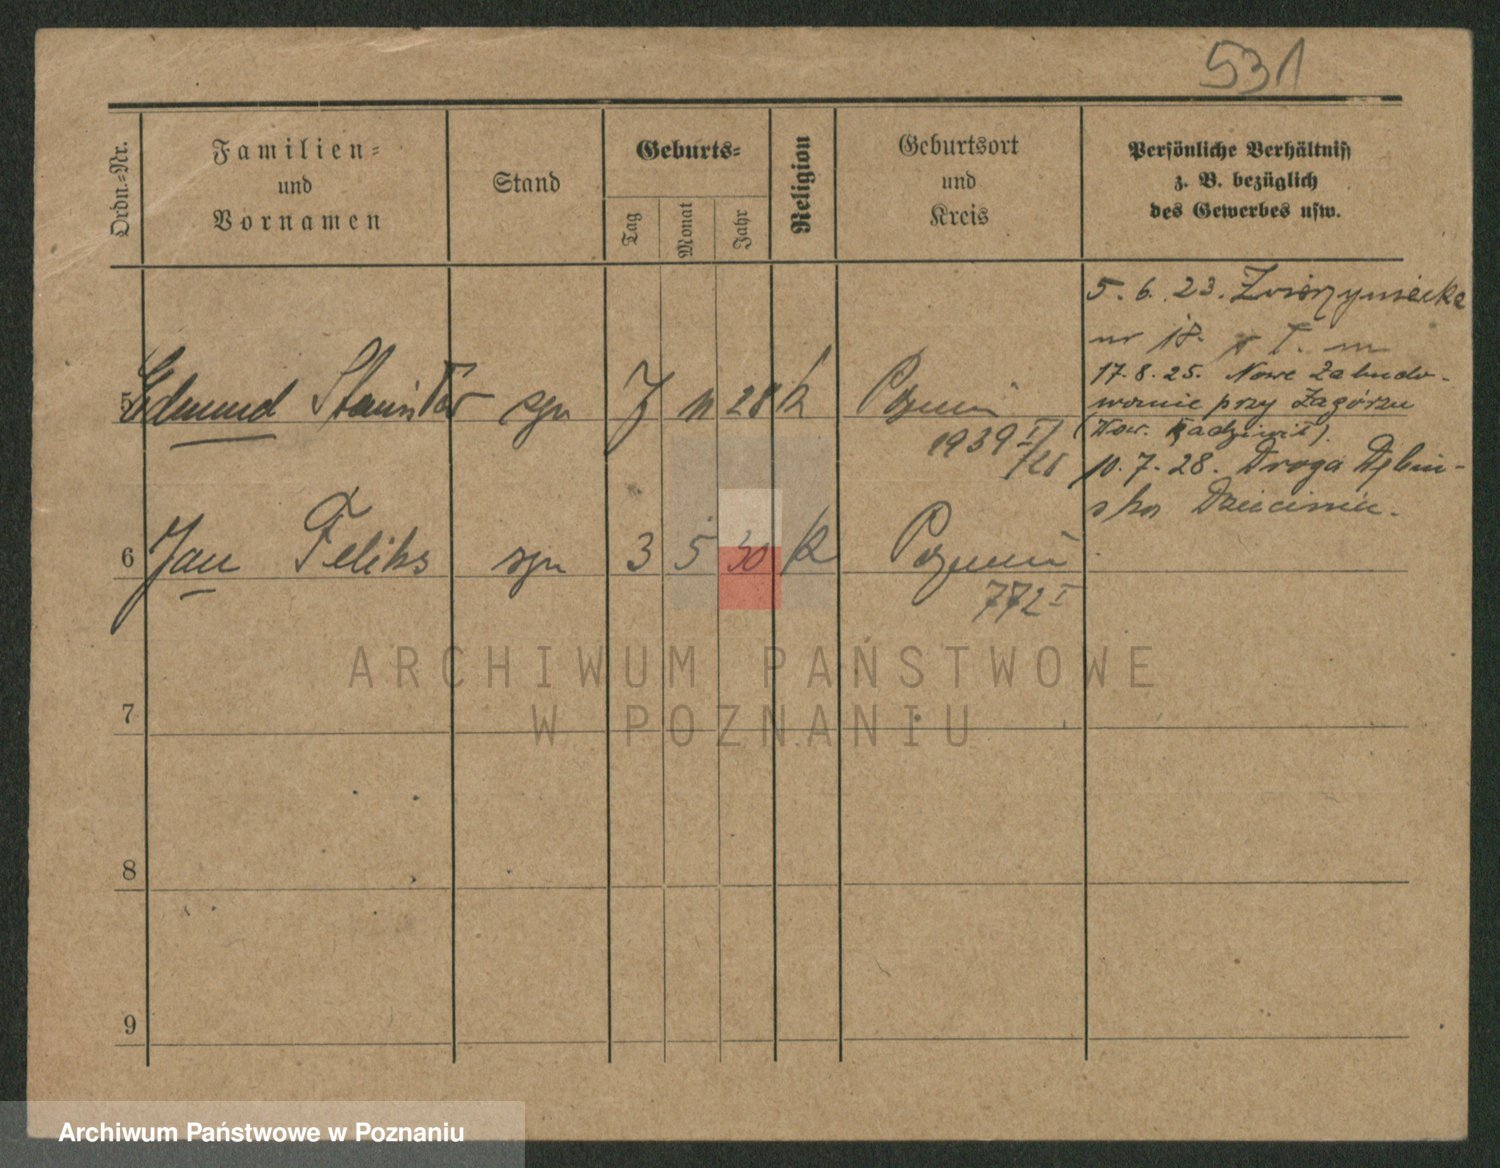 531
Ordn.=Nr.
Familien=
und
Vornamen
Stand
Geburts=
Tag
Monat
Jahr
Religion
Geburtsort
und
Kreis
Persönliche Verhältniss
z. B. bezüglich
des Gewerbes usw.
5. 6. 23. Zwierzyniecka
nr 18.
17. 8. 25. Nowe Zabudo-
wanie przy Zagórzu
10. 7. 28. Droga Dębiń-
ska
5 Edmund Stanisław syn 7 11 28 k Poznań
1939 I/28
6 Jan Feliks syn 3 5 30 k Poznań
772 I
7
8
9
ARCHIWUM PAŃSTWOWE
W POZNANIU
Archiwum Państwowe w Poznaniu